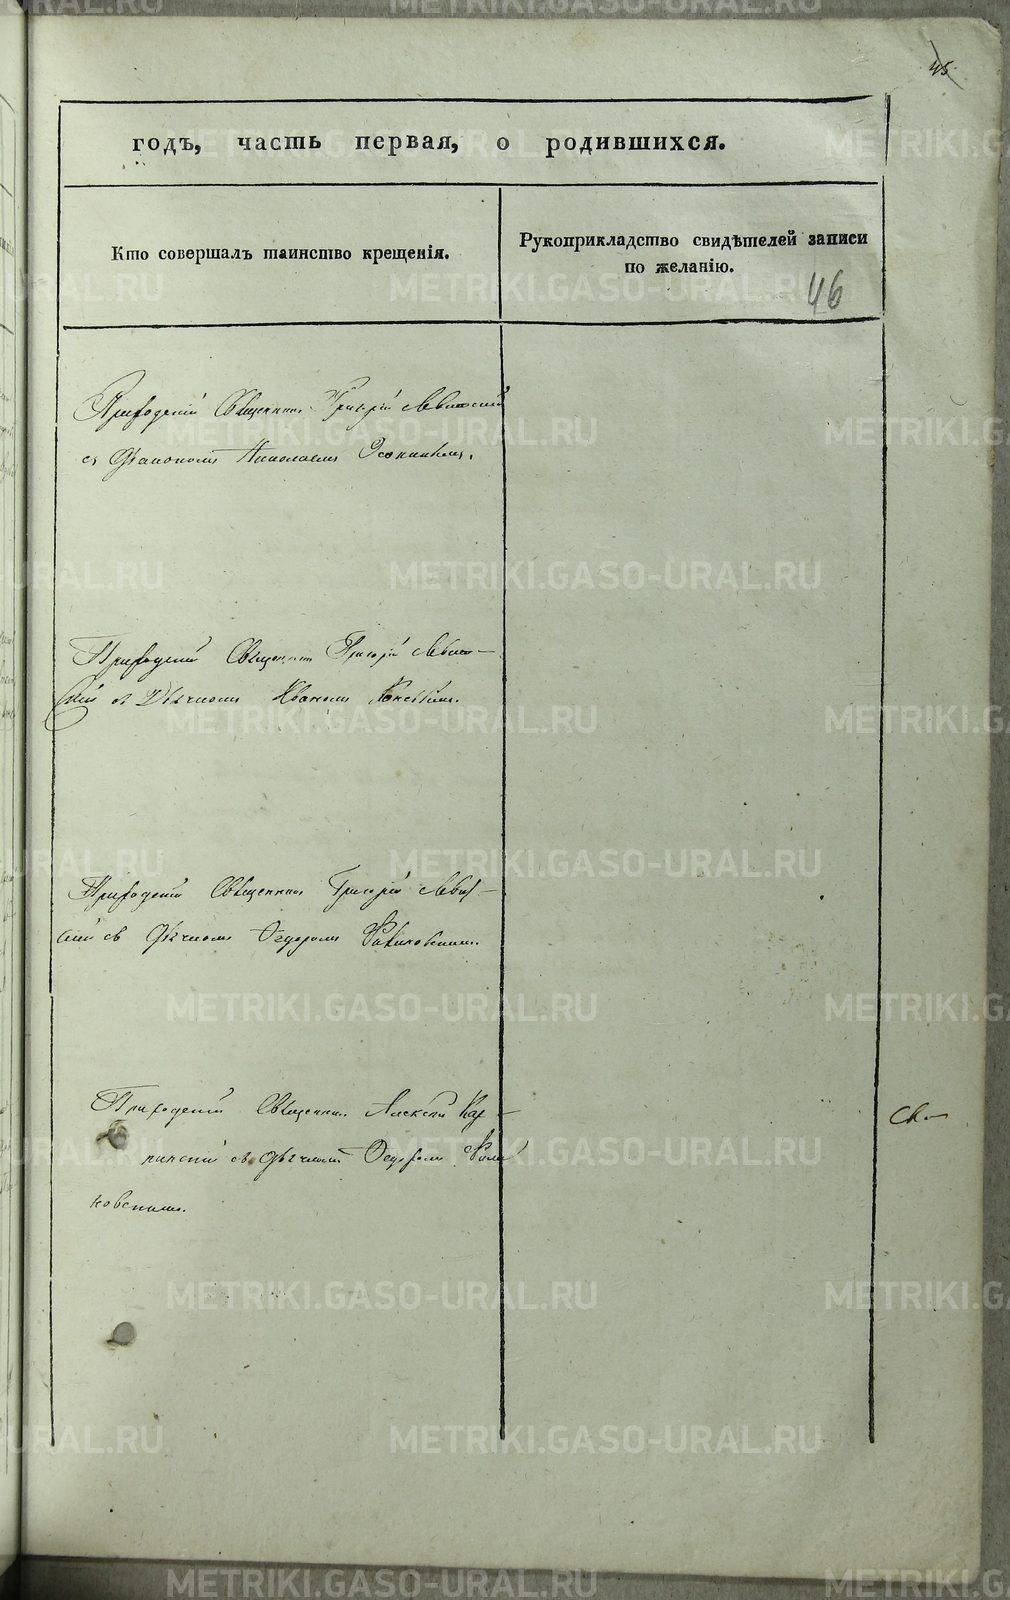 45
годъ, часть первая, о родившихся.
Кто совершалъ таинство крещенія.
Рукоприкладство свидѣтелей записи
по желанію.
46
Приходскій Священникъ Григорій Левитскій
съ Діакономъ Николаемъ
Приходскій Священникъ Григорій Левит-
скій съ Дьячкомъ Иваномъ
Приходскій Священникъ Григорій Левит-
скій съ Дьячкомъ Ѳедоромъ
Приходскій Священникъ Алексѣй
съ Дьячкомъ Ѳедоромъ
METRIKI.GASO-URAL.RU